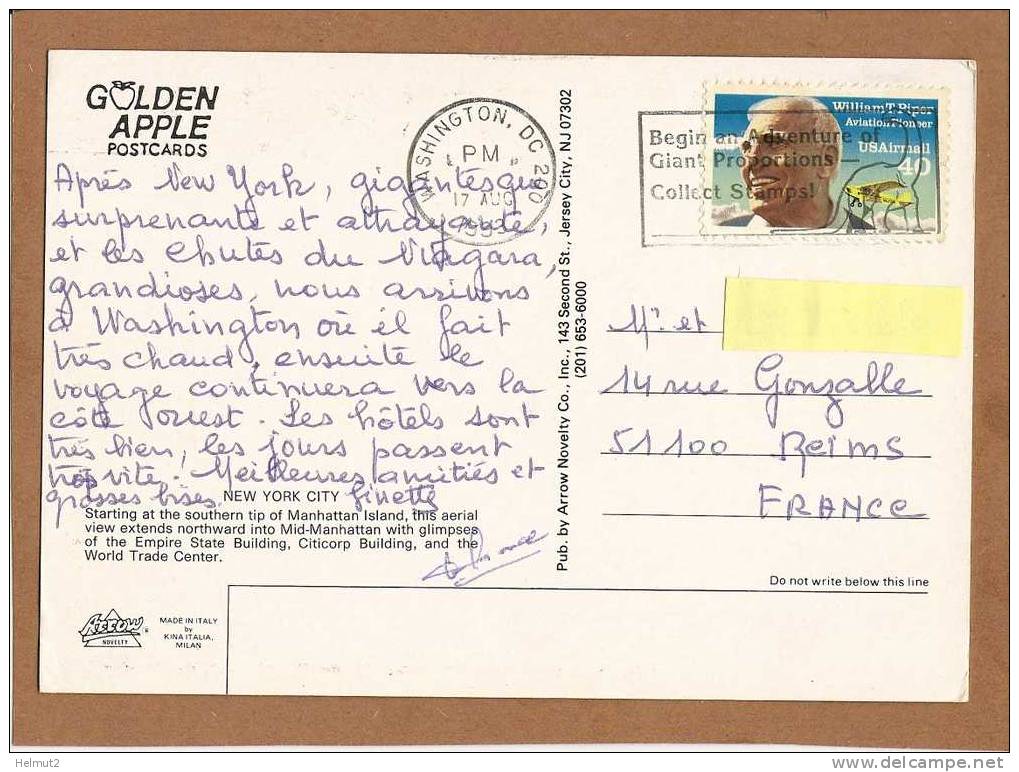 GOLDEN
APPLE
POSTCARDS
Après New York, gigantesque
surprenante et attrayante,
et les Chutes du Niagara,
grandioses, nous arrivons
à Washington où il fait
très chaud, ensuite le
voyage continuera vers la
côte ouest. Les hôtels sont
très bien, les jours passent
très vite. Meilleures amitiés et
grosses bises.
Ginette
NEW YORK CITY
Starting at the southern tip of Manhattan Island, this aerial
view extends northward into Mid-Manhattan with glimpses
of the Empire State Building, Citicorp Building, and the
World Trade Center.
Arrow
NOVELTY
MADE IN ITALY
by
KINA ITALIA,
MILAN
Pub. by Arrow Novelty Co., Inc., 143 Second St., Jersey City, NJ 07302
(201) 653-6000
WASHINGTON, DC 200
PM
17 AUG
Begin an Adventure of
Giant Proportions
Collect Stamps!
William T. Piper
Aviation Pioneer
USAirmail
40
Mr et
14 rue Gonzalle
51100 Reims
FRANCE
Do not write below this line
Helmut2
www.delcampe.net